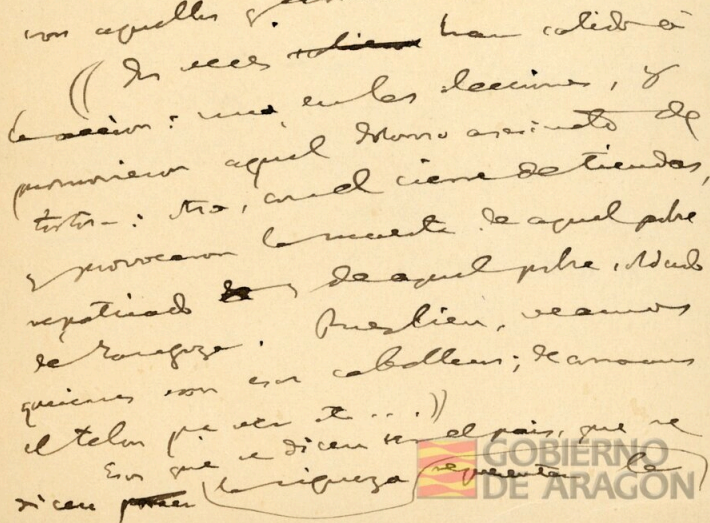 son aquellos
((Dos veces salieron han salido á
la acción: una, en las elecciones, y
promovieron aquel asesinato de
otra, con el cierre de tiendas,
y provocaron la muerte de aquel pobre
repatriado de aquel pobre soldado
de Zaragoza. Pues bien, veamos
quienes son esos caballeros; descorramos
el telon pa ver esto....))
Esos que se dicen ser el pais, que se
dicen poseer la riqueza representan la
GOBIERNO
DE ARAGON